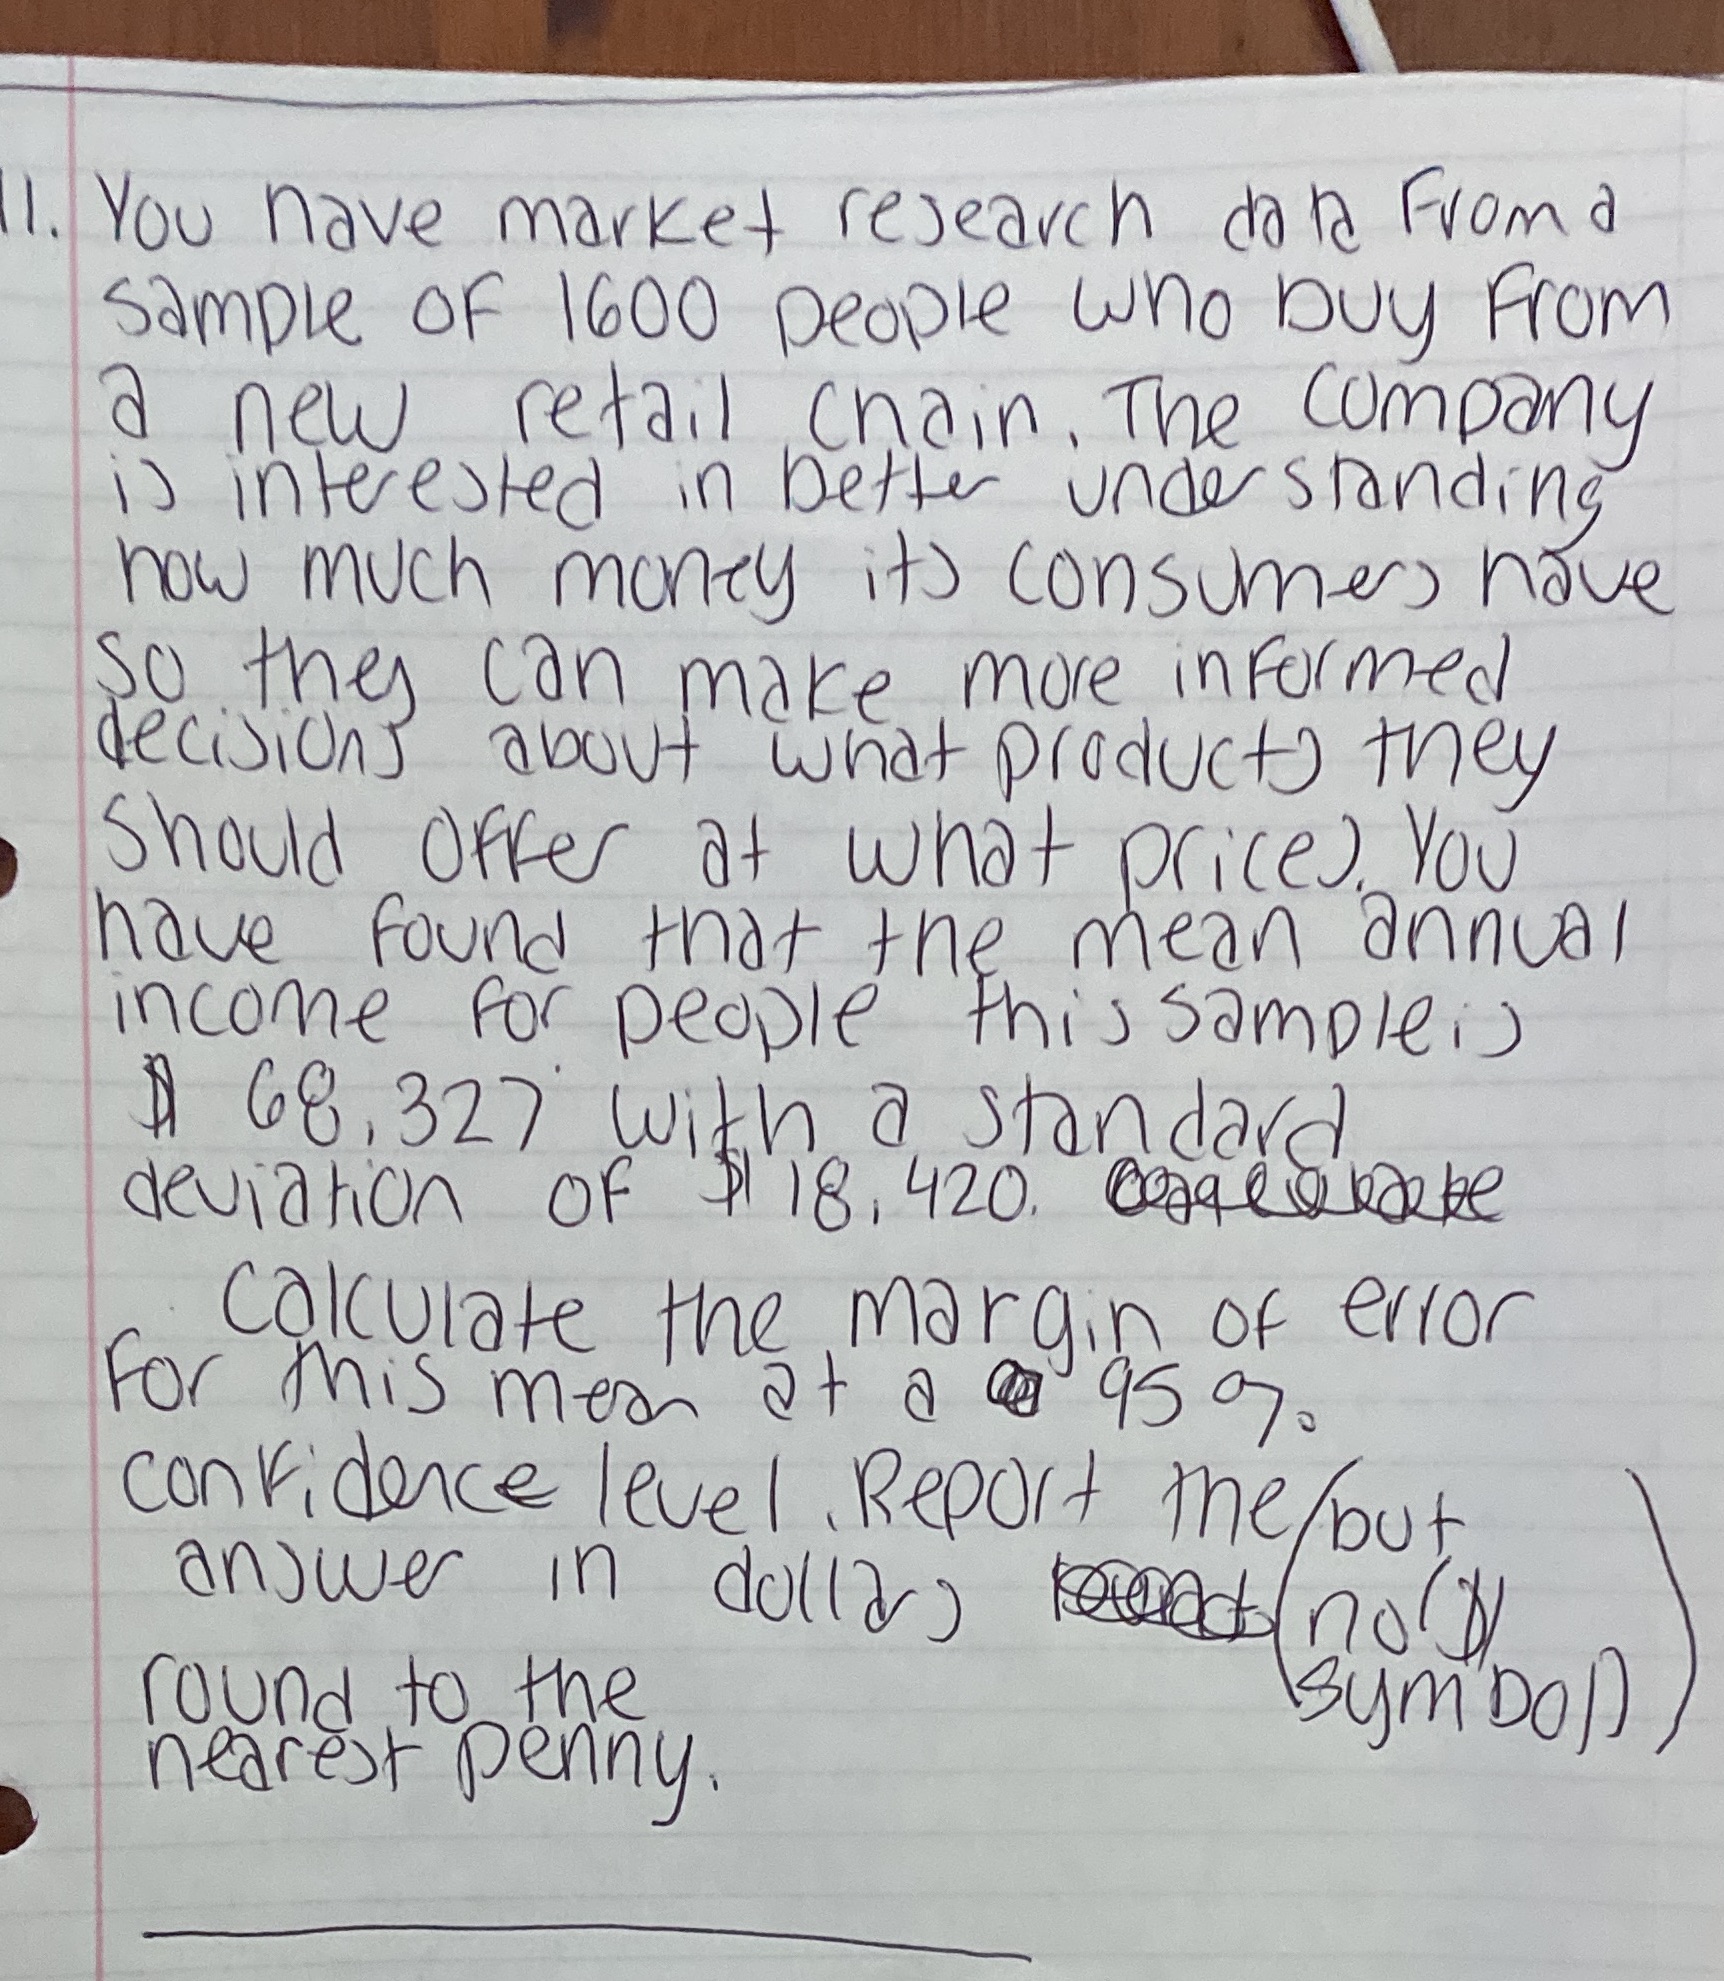 11. You have market research data from a
sample of 1600 people who buy from
a new retail chain. The company
is interested in better understanding
how much money its consumers have
so they can make more informed
decisions about what products they
should offer at what prices. You
have found that the mean annual
income for people this sample is
$ 68,327 with a standard
deviation of $ 18,420.
Calculate the margin of error
for this mean at a 95%
confidence level. Report the (but
answer in dollars no ($)
round to the symbol)
nearest penny.